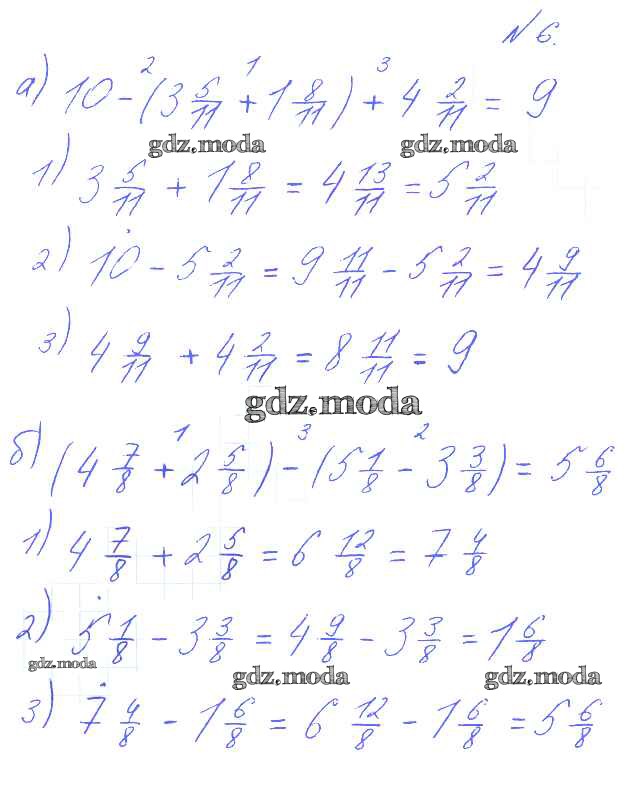 № 6.
2 1 3
а) 10 - (3 5/11 + 1 8/11) + 4 2/11 = 9
gdz.moda gdz.moda
1) 3 5/11 + 1 8/11 = 4 13/11 = 5 2/11
2) 10 - 5 2/11 = 9 11/11 - 5 2/11 = 4 9/11
3) 4 9/11 + 4 2/11 = 8 11/11 = 9
gdz.moda
1 3 2
б) (4 7/8 + 2 5/8) - (5 1/8 - 3 3/8) = 5 6/8
1) 4 7/8 + 2 5/8 = 6 12/8 = 7 4/8
2) 5 1/8 - 3 3/8 = 4 9/8 - 3 3/8 = 1 6/8
gdz.moda gdz.moda gdz.moda
3) 7 4/8 - 1 6/8 = 6 12/8 - 1 6/8 = 5 6/8